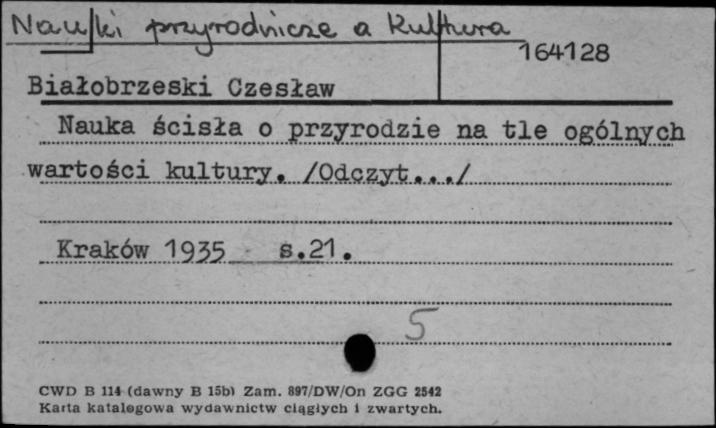 Nauki przyrodnicze a Kultura
164128
Białobrzeski Czesław
Nauka ścisła o przyrodzie na tle ogólnych
wartości kultury. /Odczyt.../
Kraków 1935 s.21.
5
CWD B 114 (dawny B 15b) Zam. 897/DW/On ZGG 2542
Karta katalogowa wydawnictw ciągłych i zwartych.